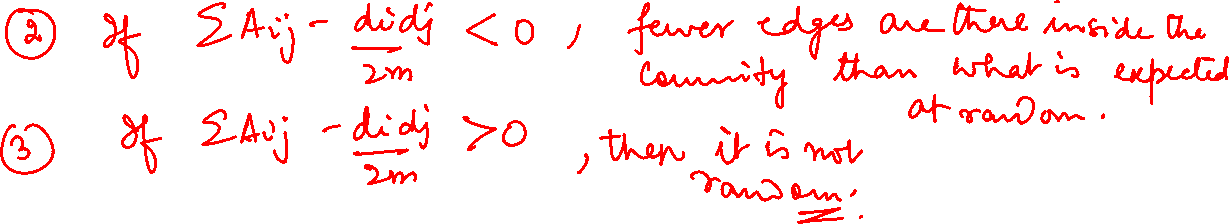 ② If ΣAij - didj/2m < 0, fewer edges are there inside the
community than what is expected
at random.
③ If ΣAij - didj/2m > 0, then it is not
random.